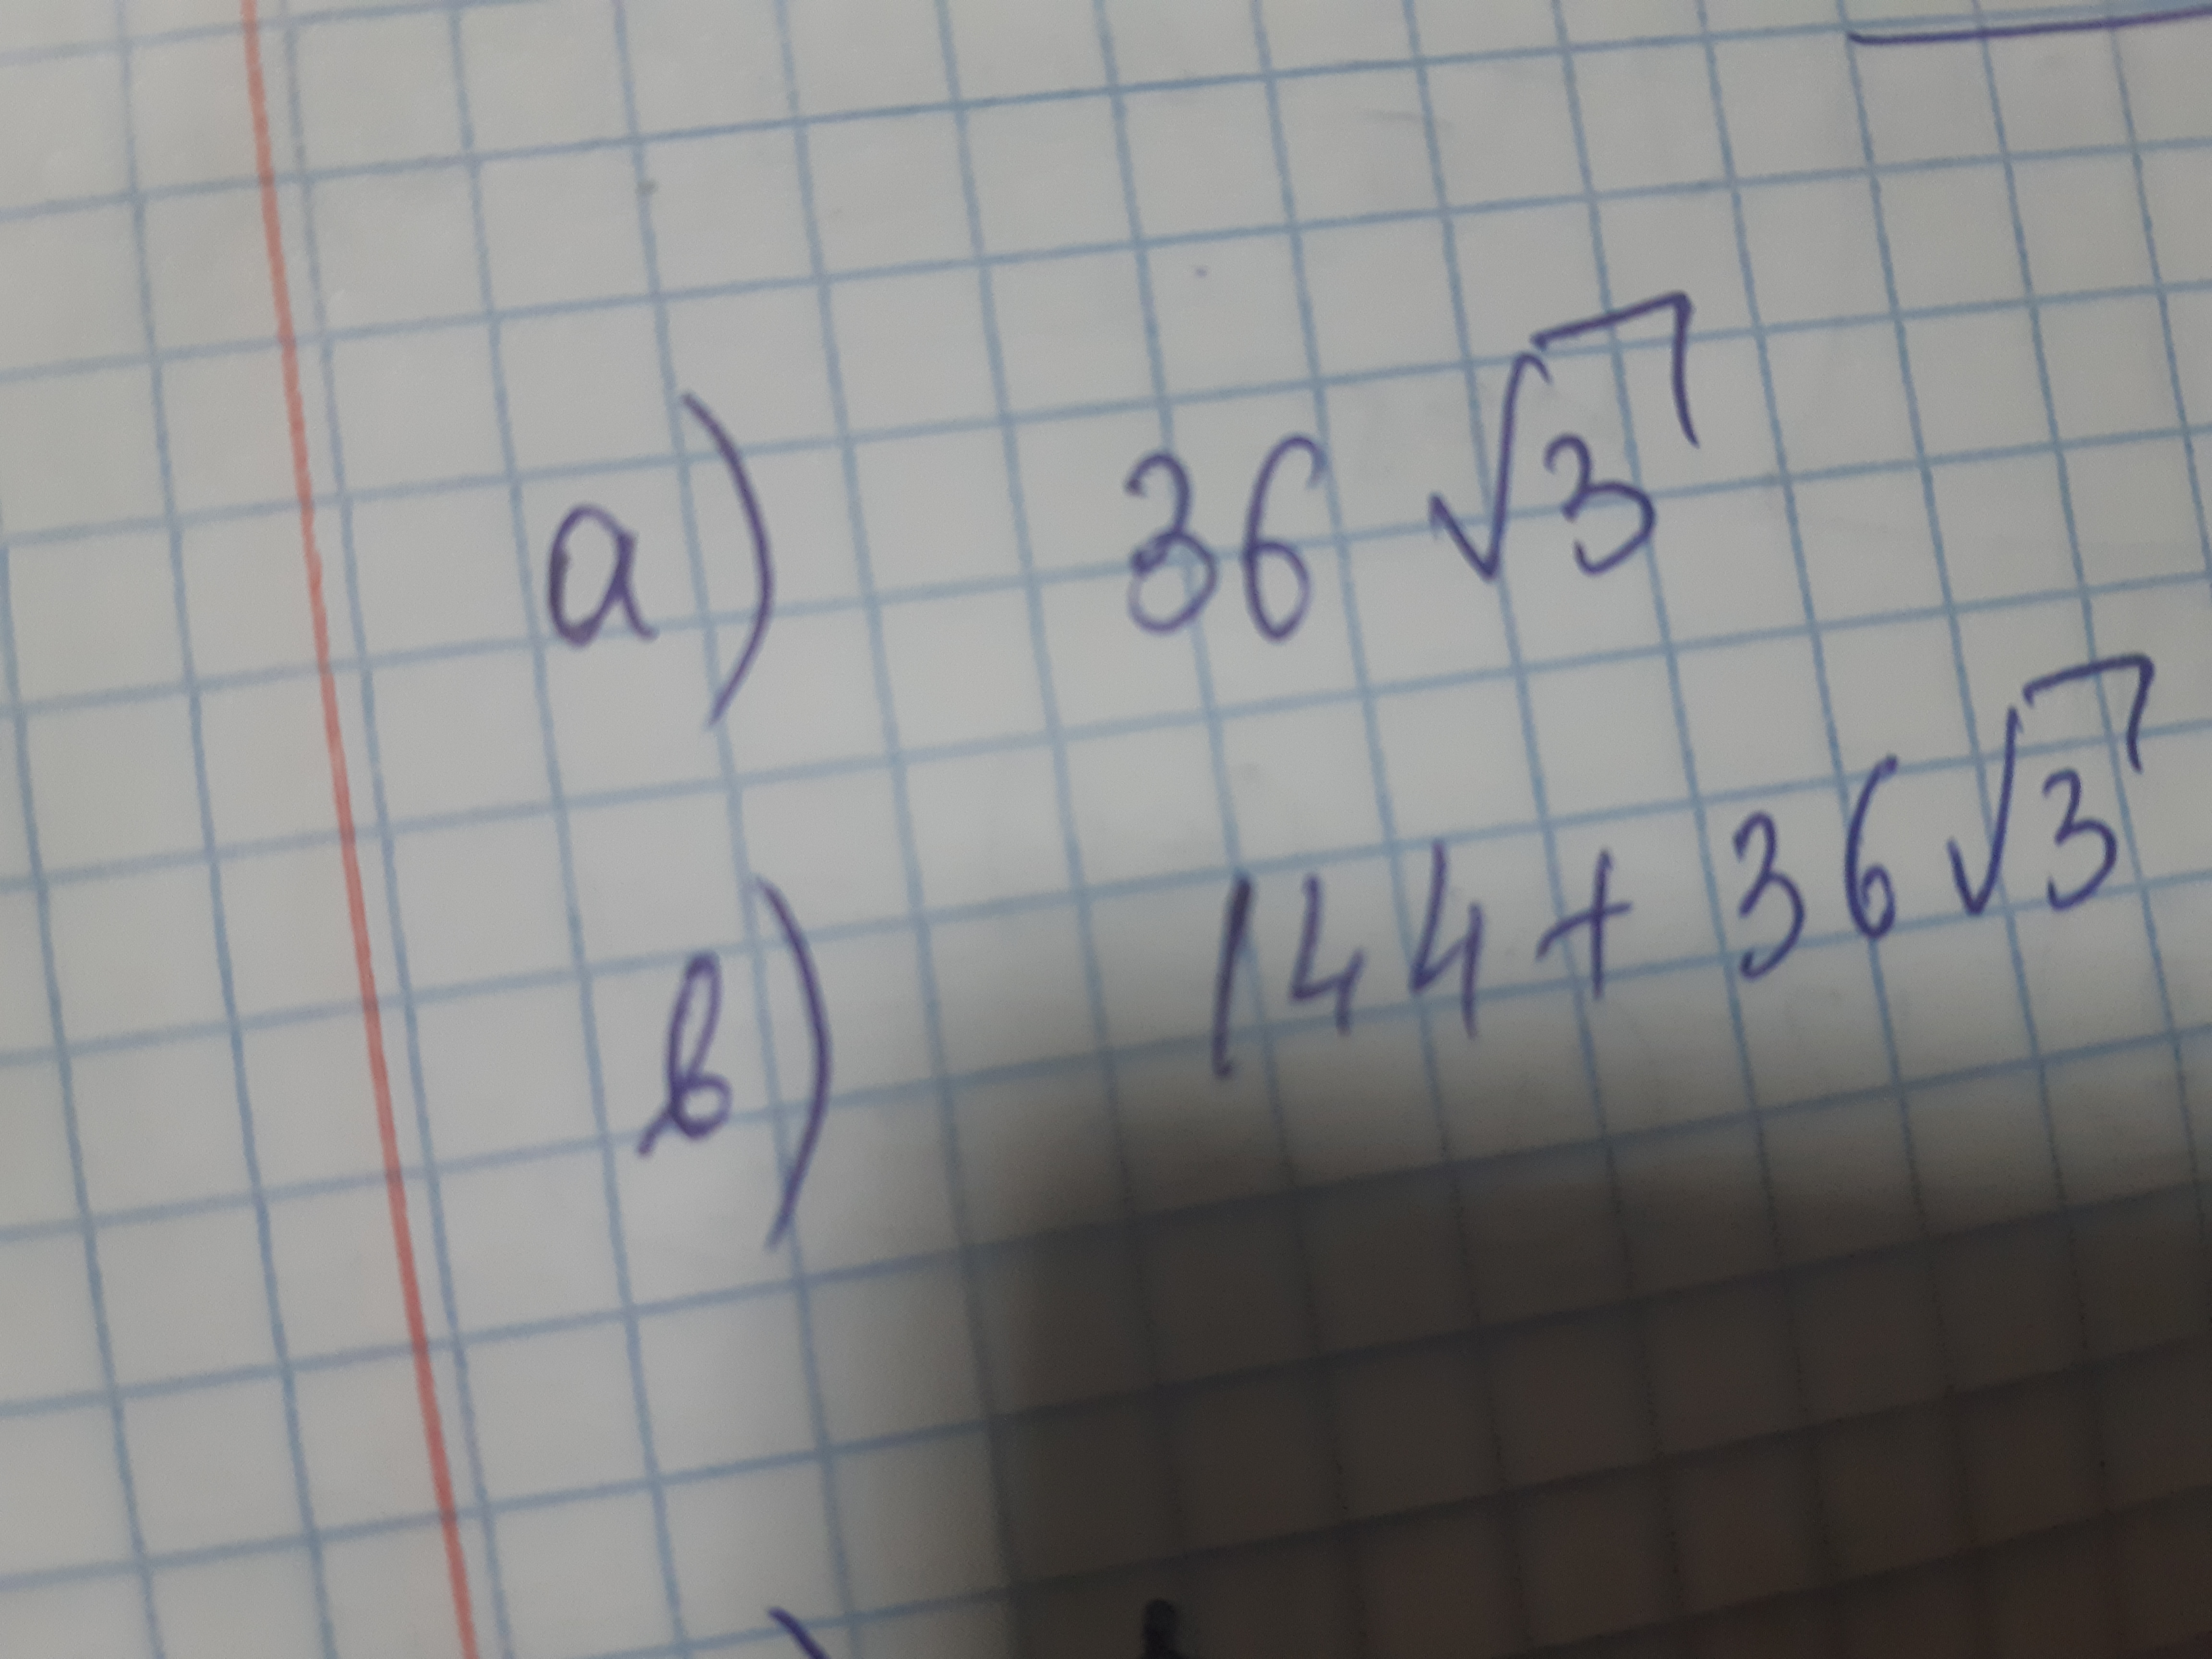 a) 36 √3
в) 144 + 36√3